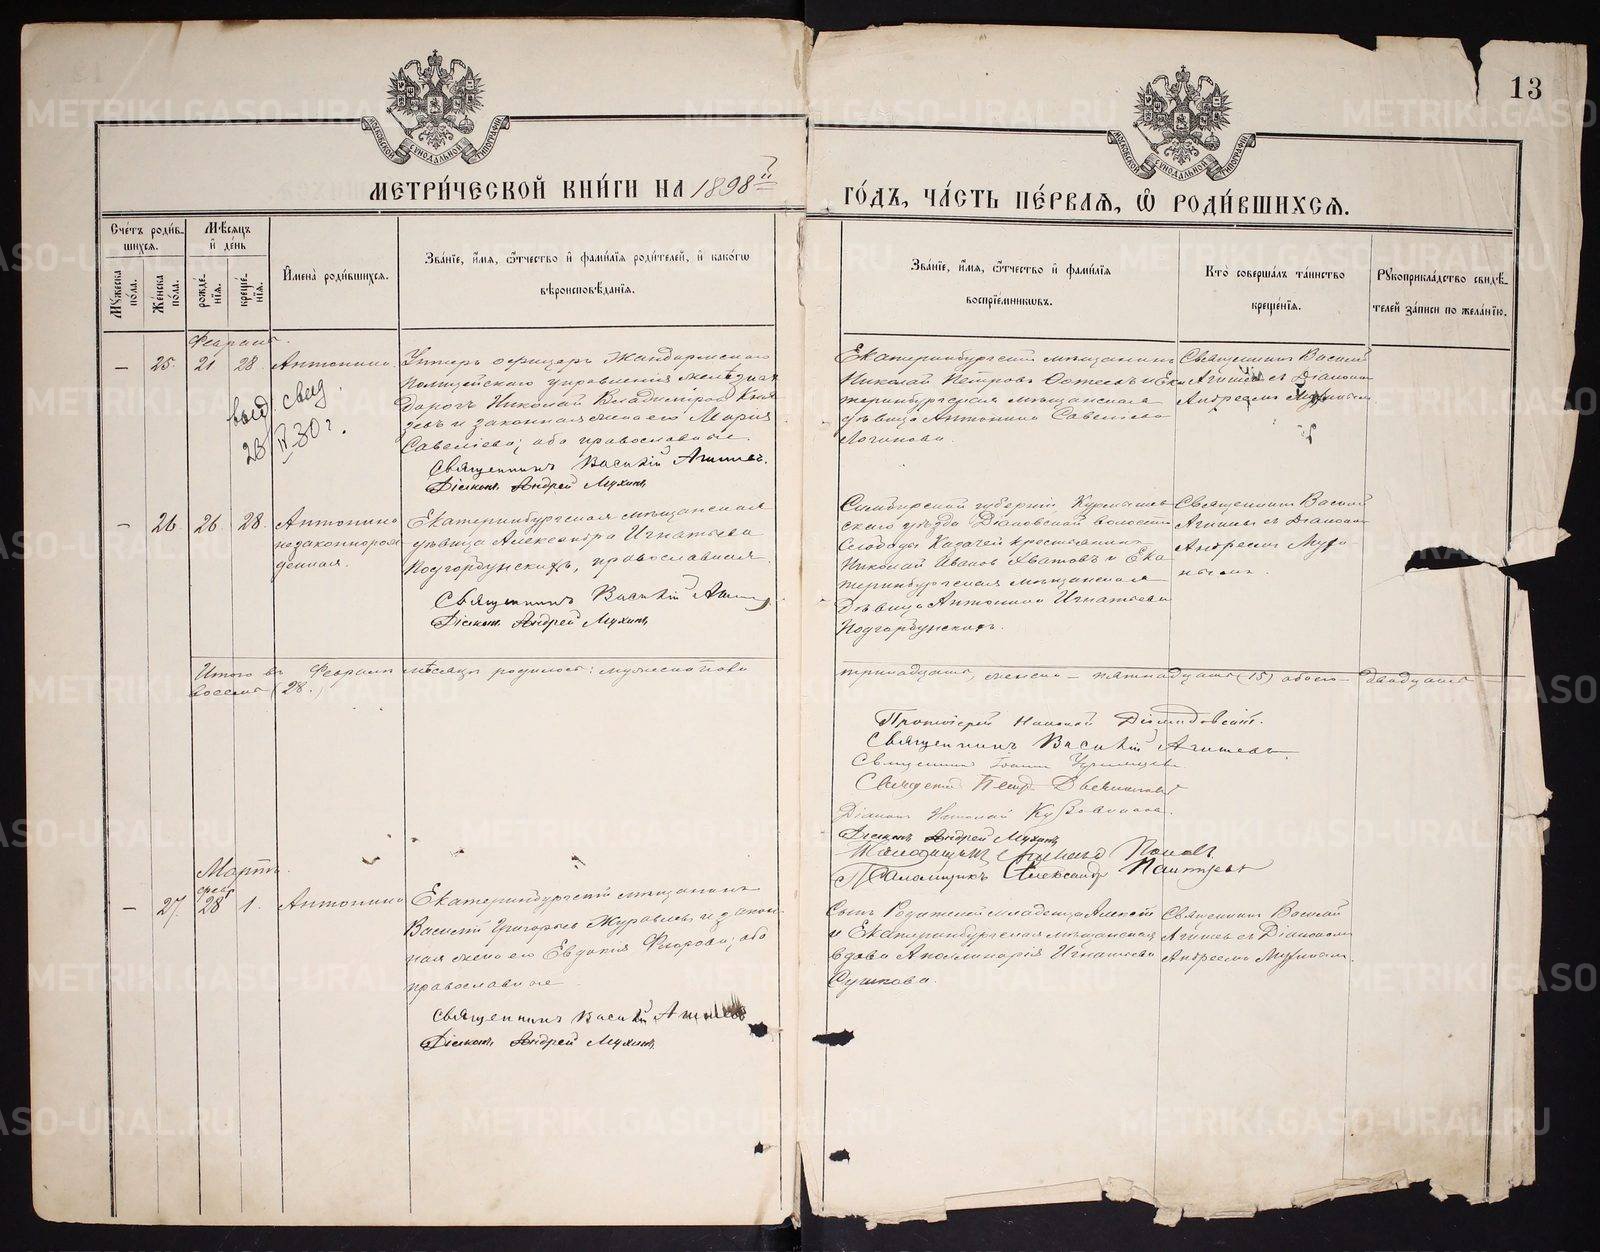 13
МЕТРИ́ЧЕСКОЙ КНИ́ГИ НА 1898й
ГО́ДЪ, ЧА́СТЬ ПЕ́РВАѦ, Ѡ РОДИ́ВШИХСѦ.
Сче́тъ роди́в-
шихся.
Му́жеска по́ла.
Же́нска по́ла.
Мѣ́сяцъ
и де́нь
рожде́-
нїя.
креще́-
нїя.
Имена̀ роди́вшихся.
Зва́нїе, и́мя, ѻ́тчество и фами́лїя роди́телей, и како́гѡ
вѣроисповѣ́данїя.
Зва́нїе, и́мя, ѻ́тчество и фами́лїя
воспрїе́мникѡвъ.
Кто̀ соверша́лъ та́инство
креще́нїя.
Рꙋкоприкла́дство свидѣ́-
телей за́писи по жела́нїю.
Февраль.
— 25. 21 28. Антонина
Унтеръ офицеръ Жандармскаго
Полицейскаго управленія желѣзныхъ
дорогъ Николай Владиміровъ Кня-
зевъ и законная жена его Марія
Савеліева; оба православные.
Священникъ Василій Агишевъ.
Діаконъ Андрей Мухинъ
выд. свид.
23 IX 30 г.
Екатеринбургскій мѣщанинъ
Николай Петровъ и Ека
теринбургская мѣщанская
дѣвица Антонина Савелiева
Логинова.
Священникъ Василій
Агишевъ съ Діакономъ
Андреемъ Мухинымъ
— 26. 26. 28. Антонина
незаконнорож
денная.
Екатеринбургская мѣщанская
дѣвица Александра Игнатьева
Подгорбунскихъ, православная
Священникъ Василій Агишевъ
Діаконъ Андрей Мухинъ
Симбирской губерніи Курмышев-
скаго уѣзда волости
Слободы Казачей крестьянинъ
Николай Ивановъ Хватовъ и Ека
теринбургская мѣщанская
Дѣвица Антонина Игнатьева
Подгорбунскихъ.
Священникъ Василій
Агишевъ съ Діакономъ
Андреемъ Мухи
нымъ.
Итого въ Февралѣ мѣсяцѣ родилось: мужеска пола
тринадцать, женска — пятнадцать (15) обоего — двадцать
восемь (28.)
Протоіерей Николай Діомидовскій.
Священникъ Василій Агишевъ.
Священникъ Іоаннъ
Священникъ Петръ
Діаконъ Николай
Діаконъ Андрей Мухинъ
Псаломщикъ Поповъ
Псаломщикъ Александръ
Мартъ.
фев
— 27. 28 1. Антонина
Екатеринбургскій мѣщанинъ
Василій Григорьевъ Журавлевъ и закон-
ная жена его Евдокія Флорова; оба
православные
Священникъ Василій Агишевъ
Діаконъ Андрей Мухинъ
Сынъ Родителей младенца Алексѣй
и Екатеринбургская мѣщанская
вдова Аполлинарія Игнатьева
Сушкова.
Священникъ Василій
Агишевъ съ Діакономъ
Андреемъ Мухинымъ.
METRIKI.GASO-URAL.RU